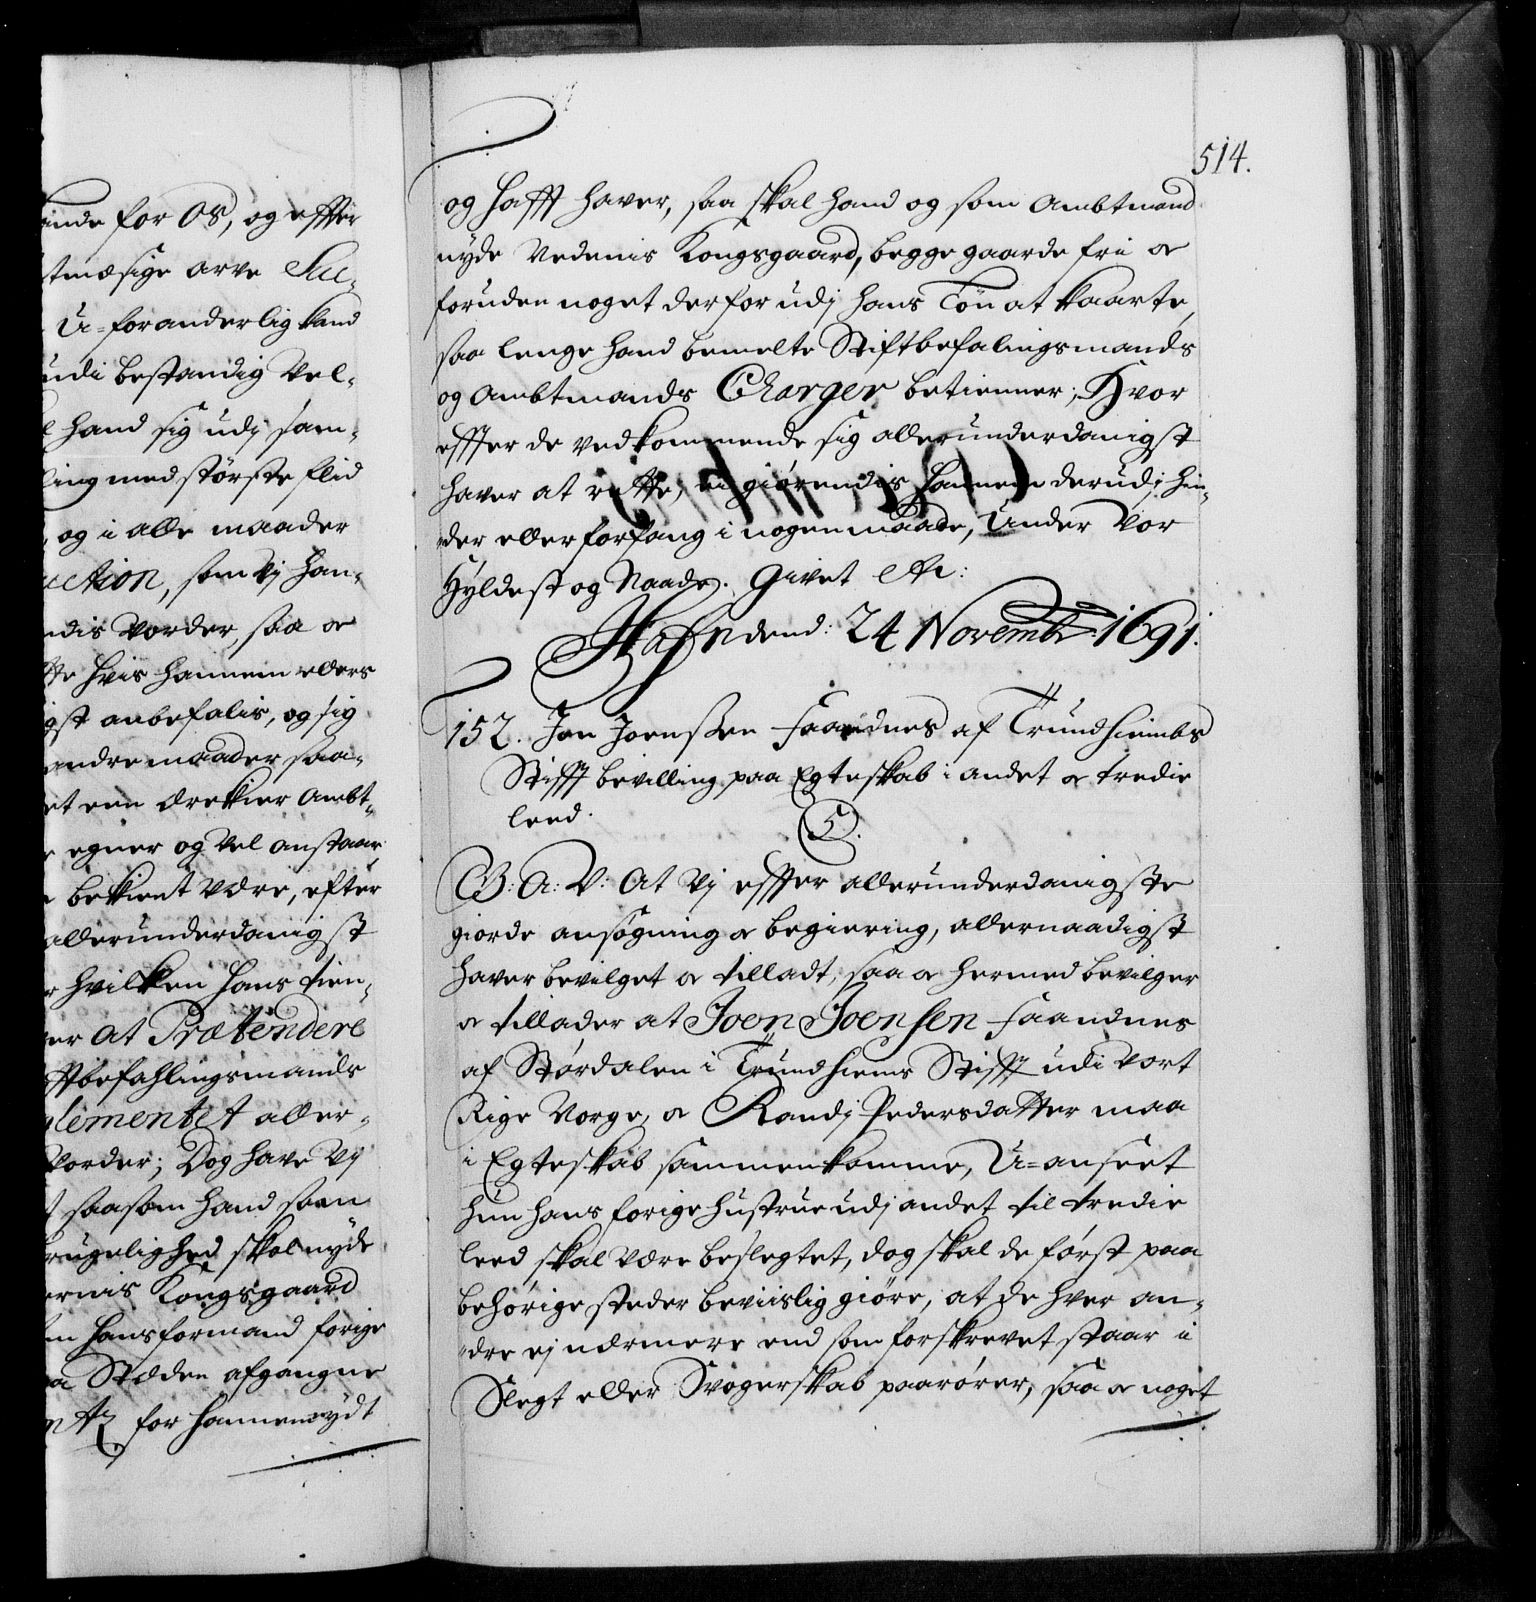 ande for Os, og effter
tmæsige arve Suc-
U-foranderlig kand
udi bestandig Vel-
hand sig udj sam-
ling med største flid
og i alle maader
ction, som Vj han-
dis vorder, saa or
hvis hannem ellers
gst anbefalis, og sig
andre maader saa-
et een ærekier Ambt-
egner og vel anstaar
bekient være, efter
allerunderdanigst
hvilken hans tien-
er at Prætendere
ftbefahlingsmands
lementet aller-
vorder; Dog have Vj
saasom hand som
rugelighed skal nyde
ernis Kongsgaard
hans formand forige
a Stæden afgangne
for hannem nydt
514.
og hafft haver, saa skal hand og som Ambtmand
nyde Vedenis Kongsgaard, begge gaarde fri or
foruden noget derfor udj hans Løn at kaarte,
saa lenge hand bemelte Stiftbefalingsmands
og Ambtmands Charger betienner; Hvor
effter de vedkommende sig allerunderdanigst
haver at rette, ei giørendis hannem derudj hin-
der eller forfang i nogen maade, Under vor
Hyldest og Naade. Givet etc:
Hafn dend: 24 Novembr: 1691.
152. Jon Joenssen Faandnes af Trundhiembs
Stifft bevilling paa Egteskab i andet or tredie
leed.
C5.
G: A: V: At Vj effter allerunderdanigste
giorde ansøgning or begiering, allernaadigst
haver bevilget or tilladt, saa or hermed bevilger
or tillader at Joen Joensen Faandnes
af Størdalen i Trundhiems Stifft udi vort
Rige Norge, or Randj Pedersdatter maa
i Egteskab sammenkomme, U-anseet
hun hans forige hustrue udj andet til tredie
leed skal være beslegtet, dog skal de først paa
behørige steder beviislig giøre, at de hver an-
dre ej nærmere end som forskrevet staar i
Slegt eller Svogerskab paarører, saa or noget